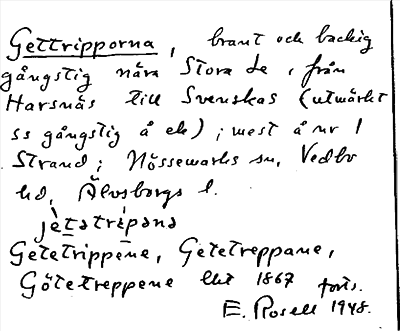 Gettripporna, brant och backig
gångstig nära Stora Le, från
Harsnäs till Svenskas (utmärkt
ss gångstig å ek); mest å nr 1
Strand; Nössemarks sn, Vedbo
hd, Älvsborgs l.
jètetrípənə
Getetrippene, Getetreppane,
Götetreppene Lkt 1867 forts.
E. Rosell 1948.